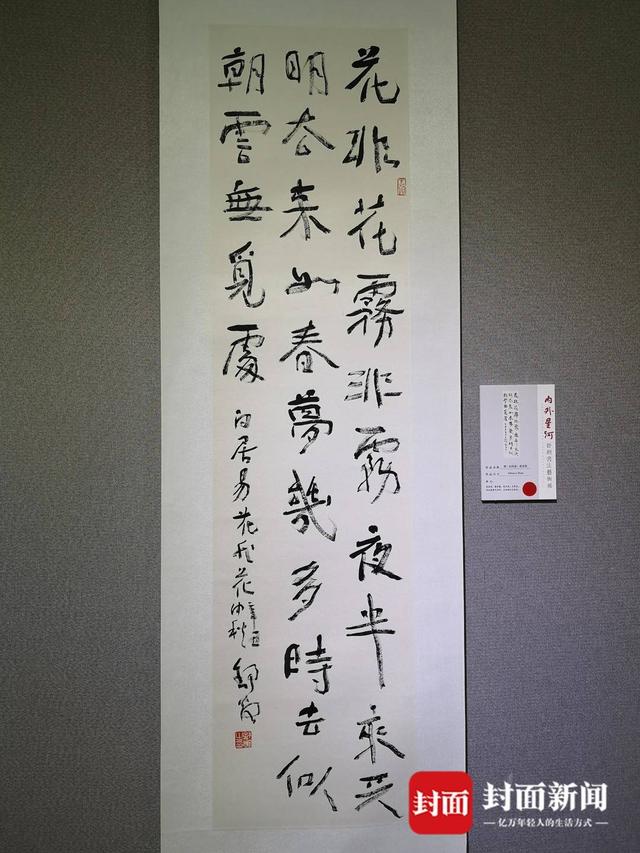 花非花霧非霧夜半来天
明去来如春夢幾多時去似
朝雲無覓處 白居易花非花 辛丑中秋 舒炯
内外星河
舒炯書法藝術展
封面
封面新闻
亿万年轻人的生活方式